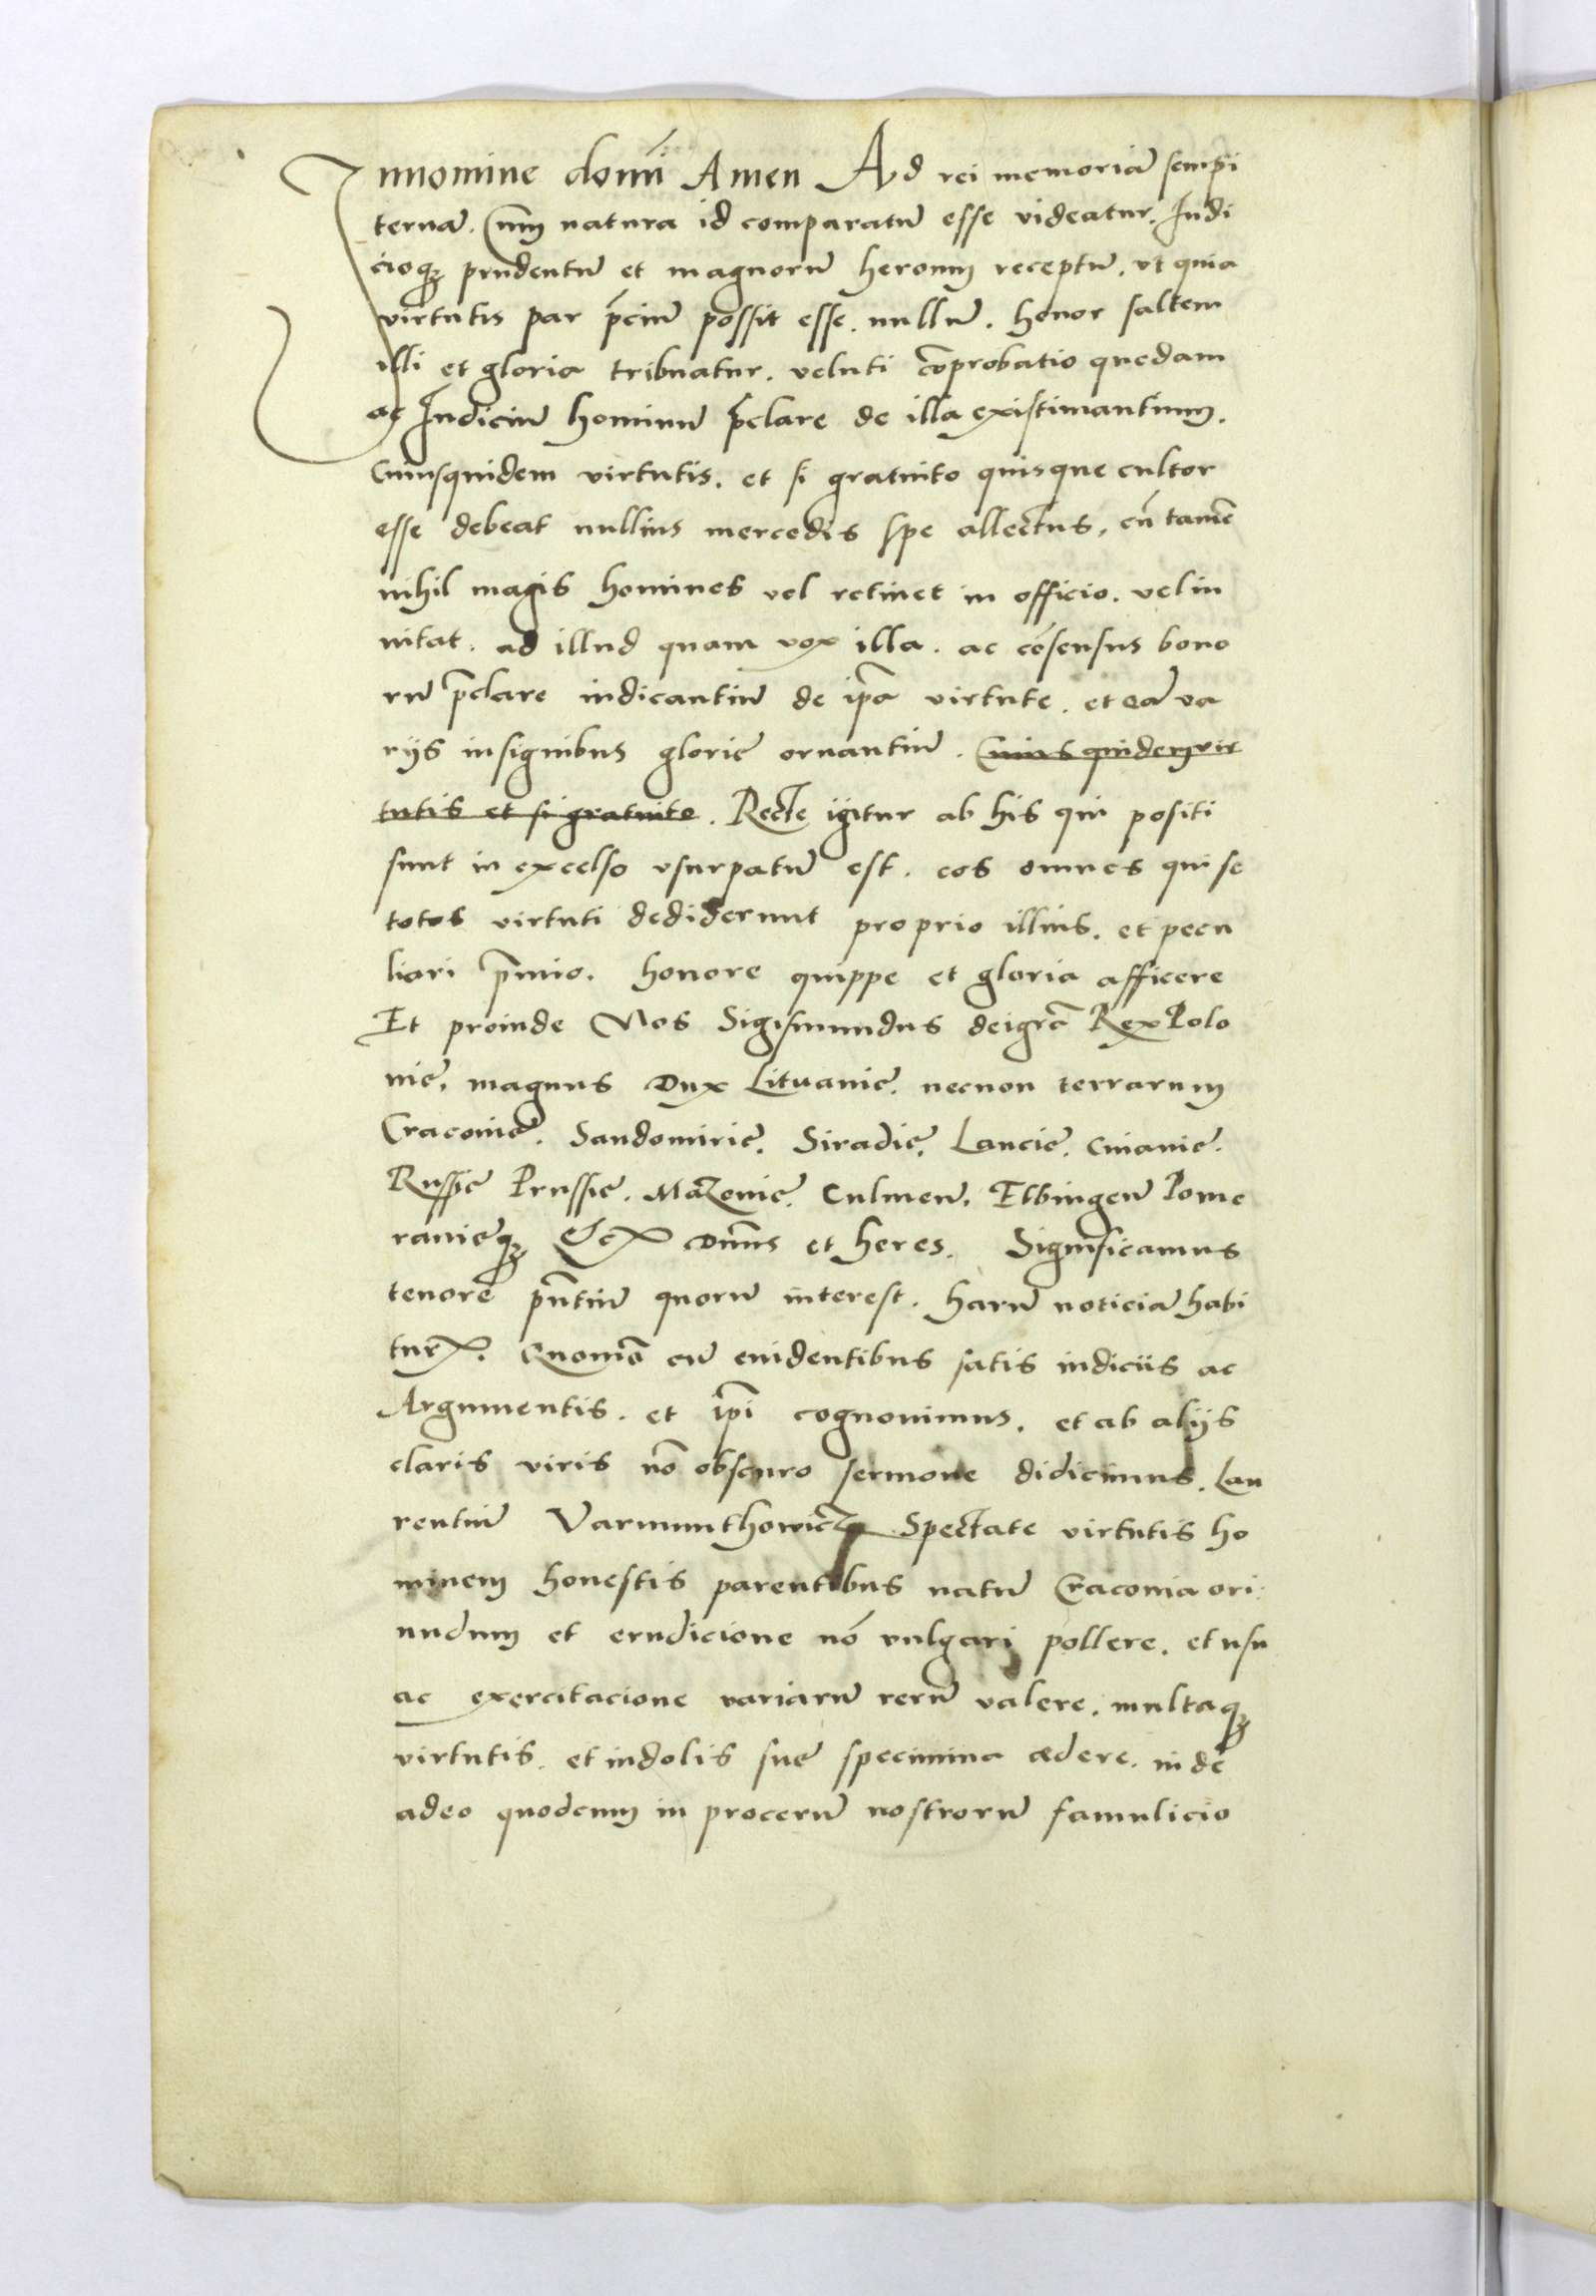 Innomine domĩ Amen Ad rei memoriã sempi
ternã. Cum natura id comparatũ esse videatur. Iudi
cioqꝫ prudentũ et magnorũ heroum receptũ, vt quia
virtutis par p̃ciũ possit esse nullũ. honor saltem
illi et gloria tribuatur. veluti cõprobatio quedam
ac Iudiciũ hominũ p̃clare de illa existimantium.
Cuiusquidem virtutis. et si gratuito quisque cultor
esse debeat nullius mercedis spe allectus, cũ tamẽ
nihil magis homines vel retinet in officio. vel in
uitat. ad illud quam vox illa. ac cõsensus bono
rũ p̃clare iudicantiũ de ip̃a virtute. et eã va
rijs insignibus glorię ornantiũ. Cuius quidem vir
tutis et si gratuito. Recte igitur ab his qui positi
sunt in excelso vsurpatũ est. eos omnes qui se
totos virtuti dediderunt proprio illius. et pecu
liari p̃mio. honore quippe et gloria afficere
Et proinde Nos Sigismundus dei gr̃a Rex Polo
nię, magnus Dux Lituanię. necnon terrarum
Cracouię. Sandomirię. Siradię, Lancię. Cuiauię.
Russię Prussię. Mazouię. Culmeñ. Elbingeñ Pome
ranięqꝫ &cꝭ Dñus et heres. Significamus
tenore p̃ntiũ quorũ interest. harũ noticiã habi
turꝭ. Quoniã cũ euidentibus satis indiciis ac
Argumentis. et ip̃i cognouimus. et ab alijs
claris viris nõ obscuro sermone didicimus. Lau
rentiũ Varmunthowicz Spectate virtutis ho
minem honestis parentibus natũ Cracouia ori
undum et erudicione nõ vulgari pollere. et usu
ac exercitacione variarũ rerũ valere. multaqꝫ
virtutis. et indolis suę specimina ædere. in de
adeo quodcum in procerũ nostrorũ famulicio